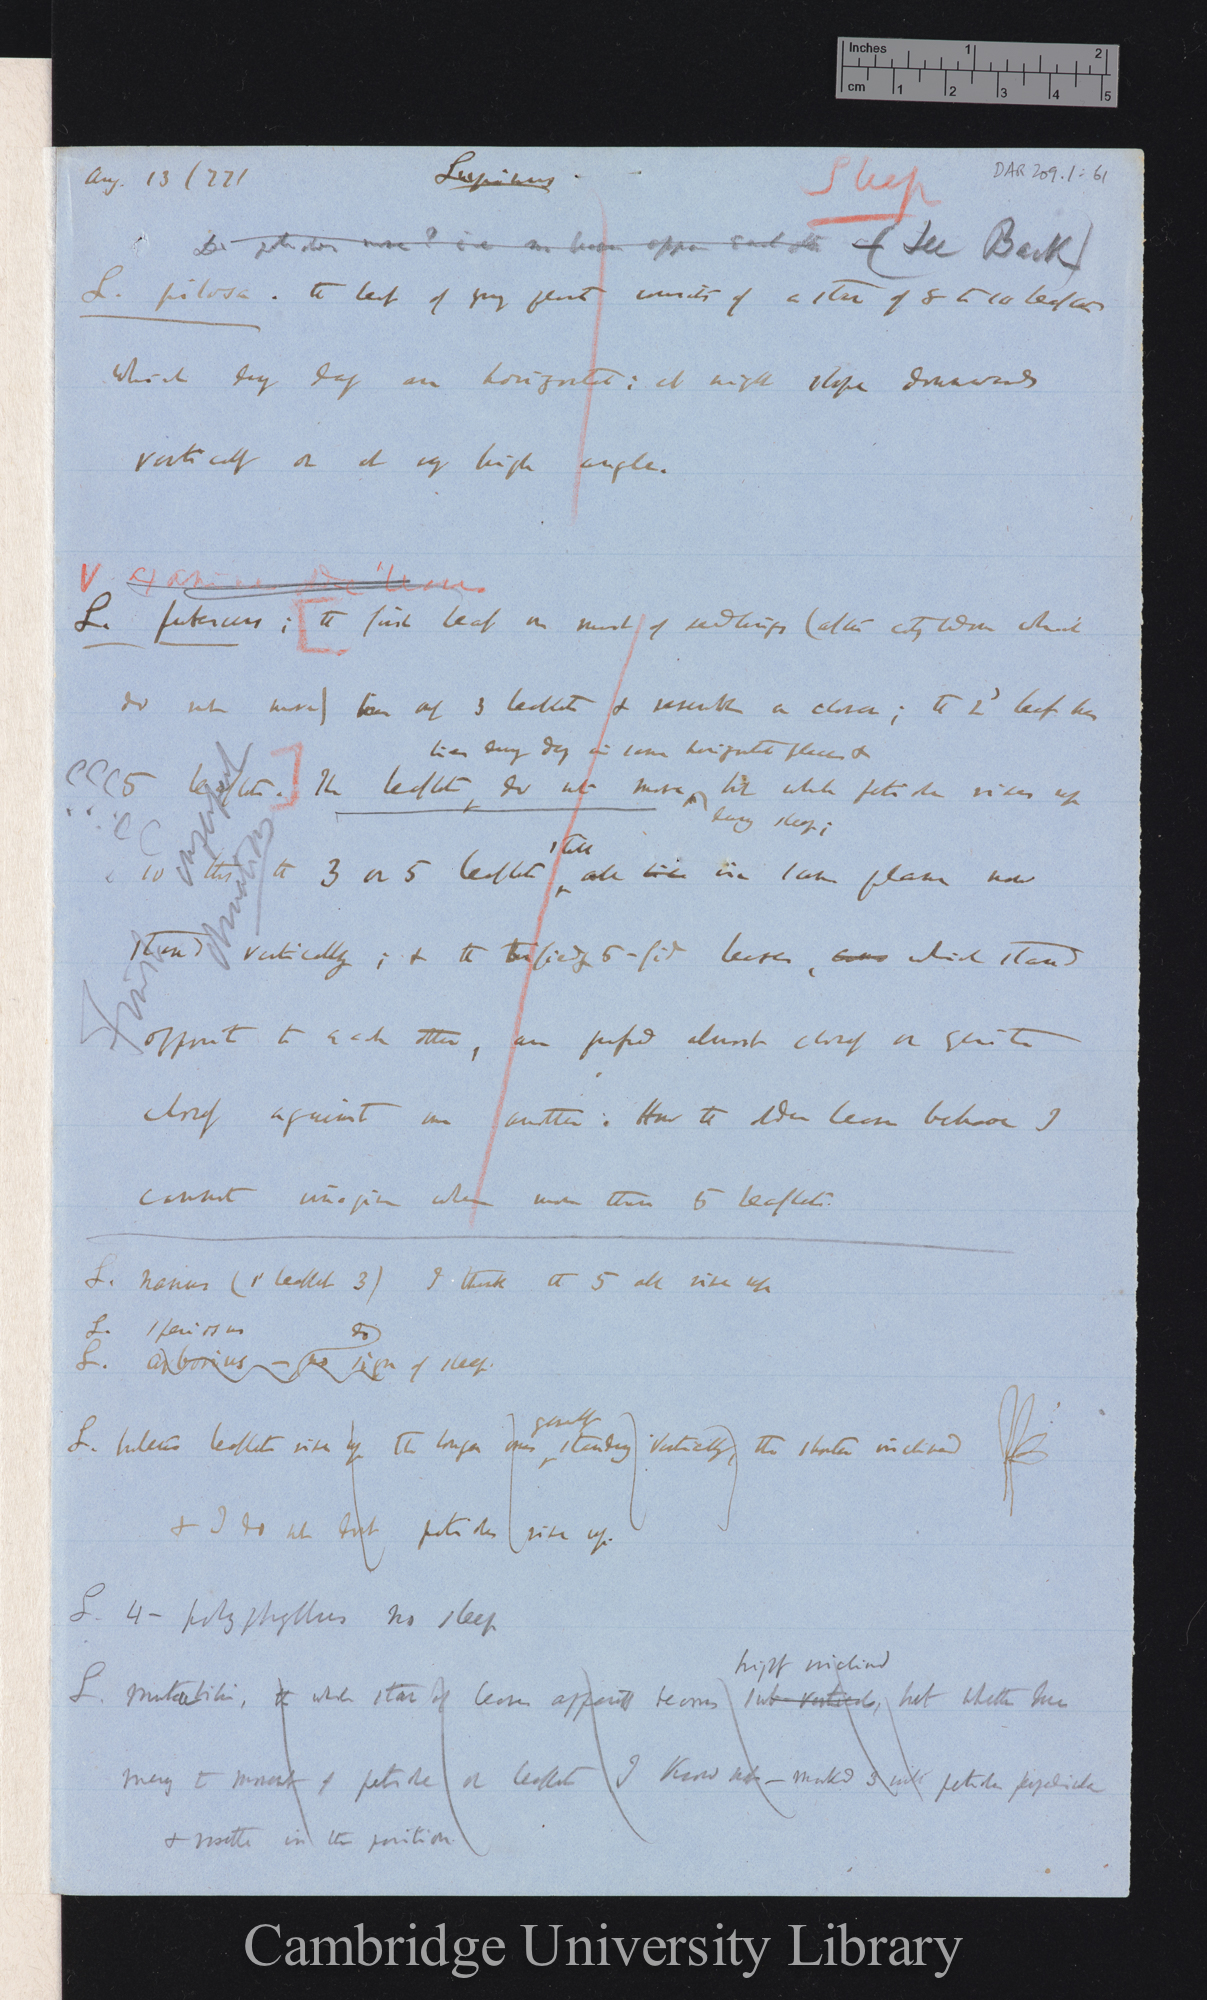 Inches 1 2
cm 1 2 3 4 5
Aug. 13 /77/ Lupinus Sleep DAR 209.1: 61
Do petioles move? (See Back)
L. pilosus. the leaf of young plant consists of a star of 8 to 10 leaflets
which during day are horizontal; at night slope downwards
vertically or at very high angle.
L. pubescens; [the first leaf on most of seedlings (after cotyledons which
do not move) 3 leaflets & resemble a clover; the 2d leaf has
lies during day in same horizontal plane &
5 leaflets.] The leaflets do not move, but whole petiole rises up
during sleep;
so that the 3 or 5 leaflets still all in same plane now
imperfect observations
stand vertically; & the 5-fid leaves, which stand
opposite to each other, are pressed almost closely or quite
closely against one another. How the older leaves behave I
cannot imagine when more than 5 leaflets.
L. nanus (1st leaflet 3) I think the 5 all rise up
L. speciosus do
L. arboreus — no sign of sleep.
L. luteus leaflets rise up the longer ones generally standing vertically, the shorter inclined
& I do not doubt petioles rise up.
L. 4- polyphyllus no sleep
highly inclined
L. mutabilis, the whole star of leaves apparently becomes sub-vertical, but whether due
to movement of petiole or leaflets I know not — marked 3 with petioles
& rosette in this position
Cambridge University Library